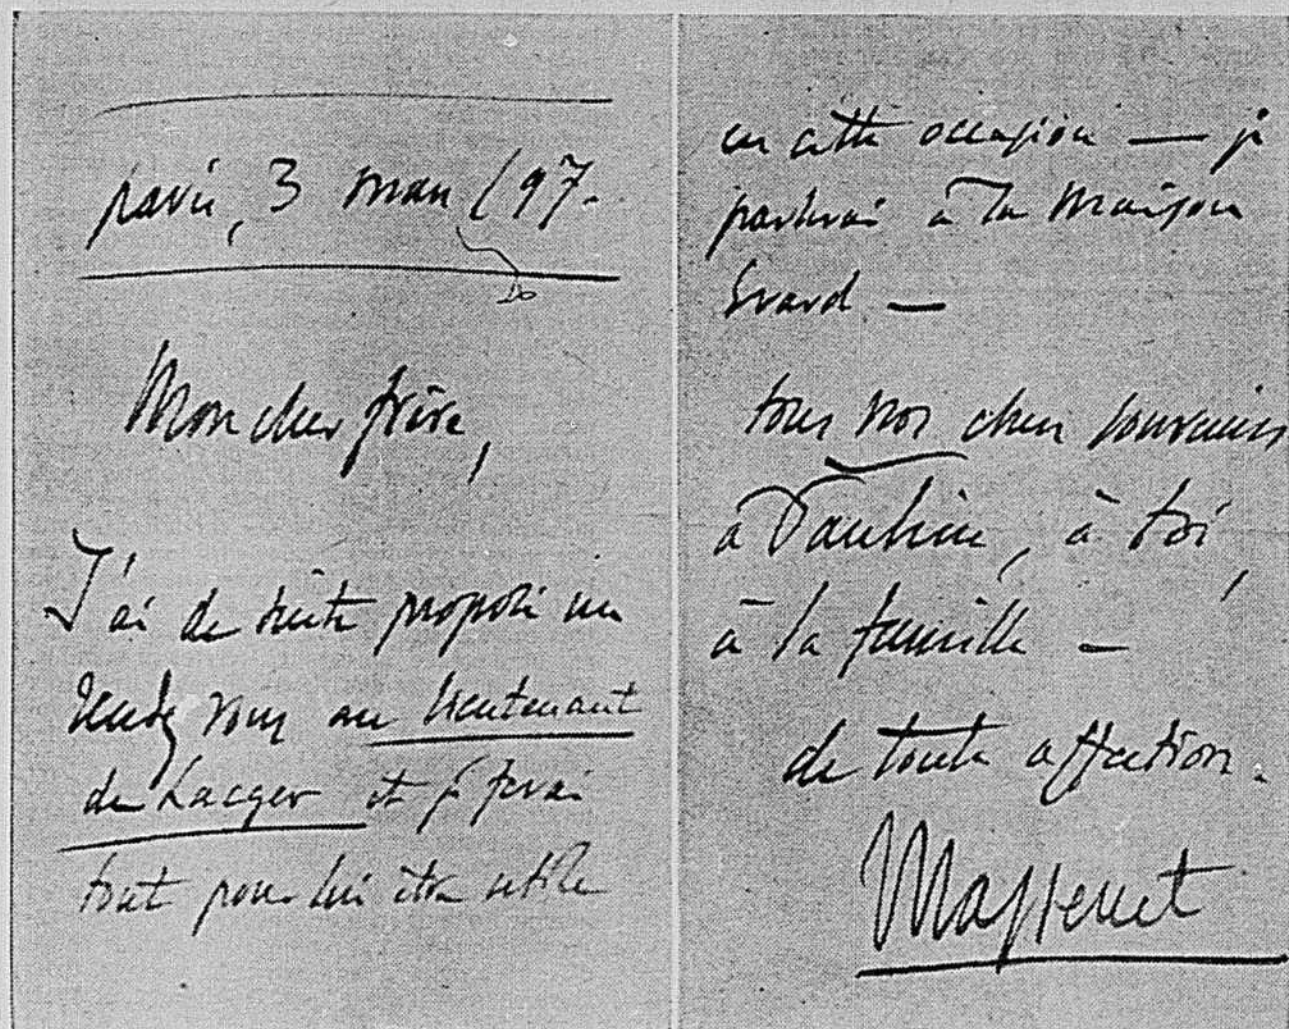 paris, 3 mars /97.
Mon cher frère,
J'ai de suite proposé un
rendez vous au lieutenant
de Lacger et je ferai
tout pour lui être utile
en cette occasion — je
parlerai à la Maison
Erard —
tous nos chers souvenirs
à Pauline, à toi,
à la famille —
de toute affection.
Massenet